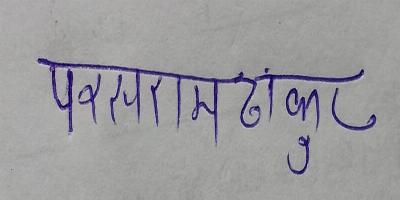 परसराम ठाकुर